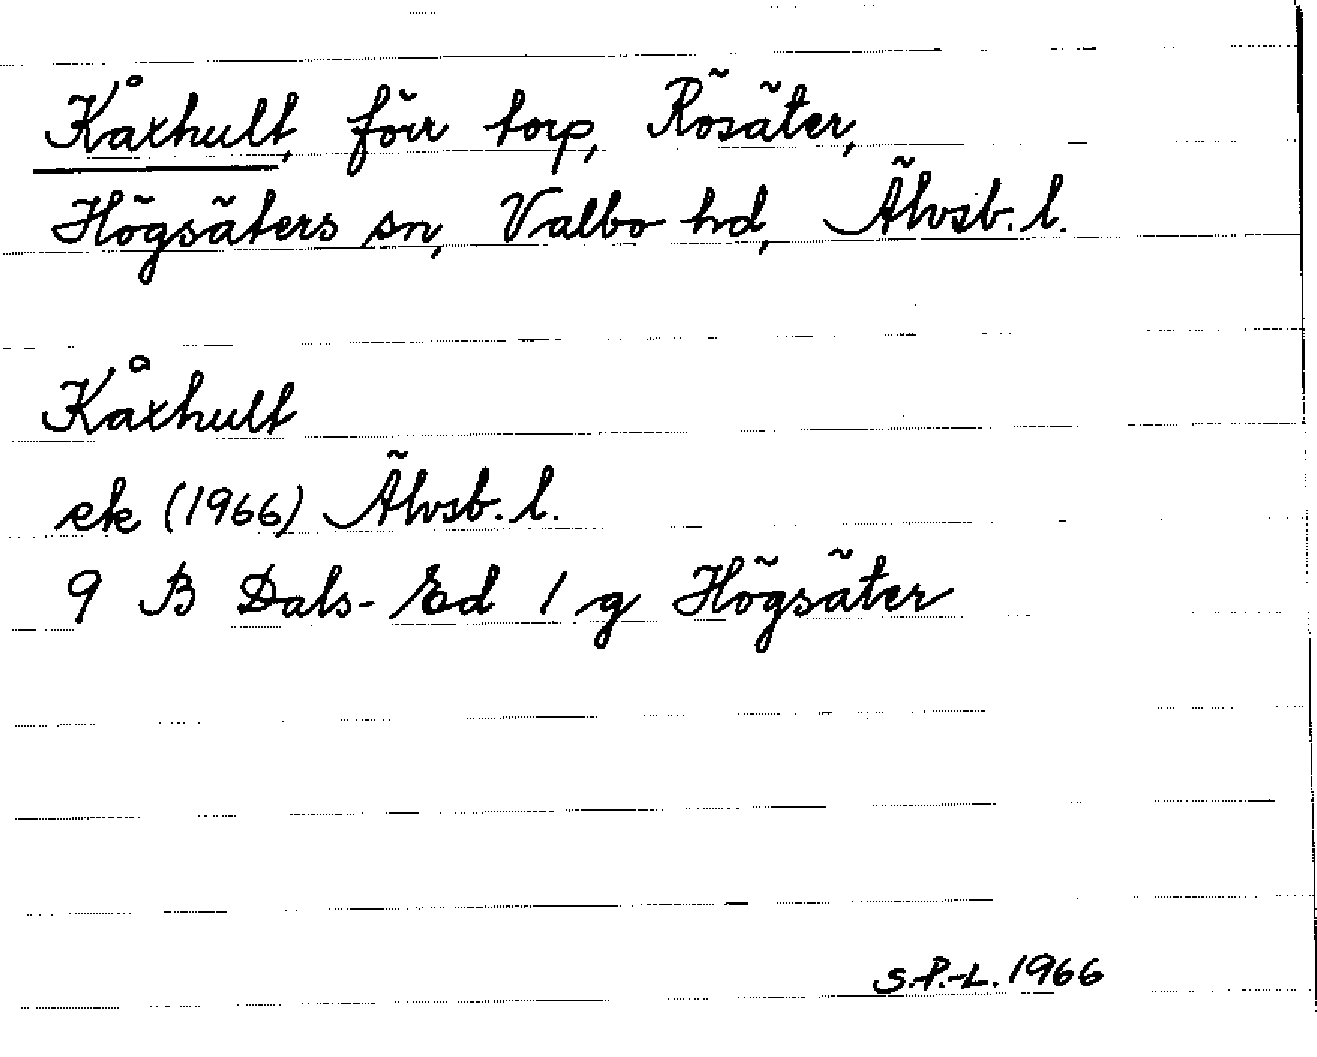 Kåxhult, förr torp, Rösäter,
Högsäters sn, Valbo hd, Älvsb. l.
Kåxhult
ek (1966) Älvsb. l.
9 B Dals-Ed 1 g Högsäter
S.P.-L. 1966